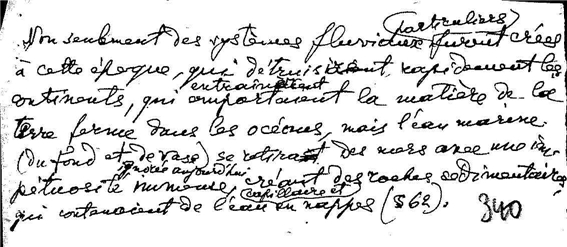 (particuliers)
Non seulement des systèmes fluviaux furent créés
à cette époque, qui détruisirent rapidement les
entraînaient
continents, qui emportaient la matière de la
terre ferme dans les océans, mais l'eau marine
(du fond et de vase) se retirait des mers avec une im-
ignorée aujourd'hui
pétuosité immense, créant des roches sédimentaires,
(capillaire et)
qui contenaient de l'eau en nappes (§62).
340